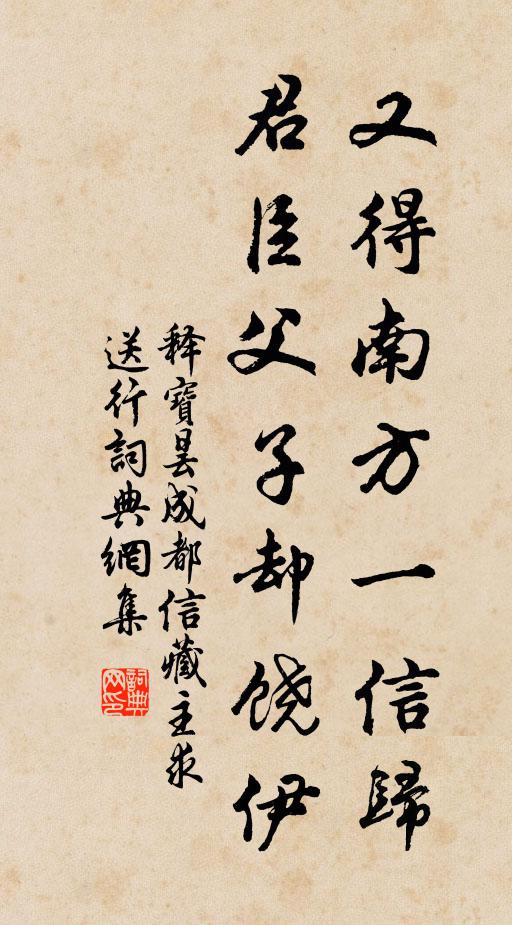 又得南方一信歸
君臣父子却饶伊
释寶昙成都信藏主求
送行詞典網集
詞典網印